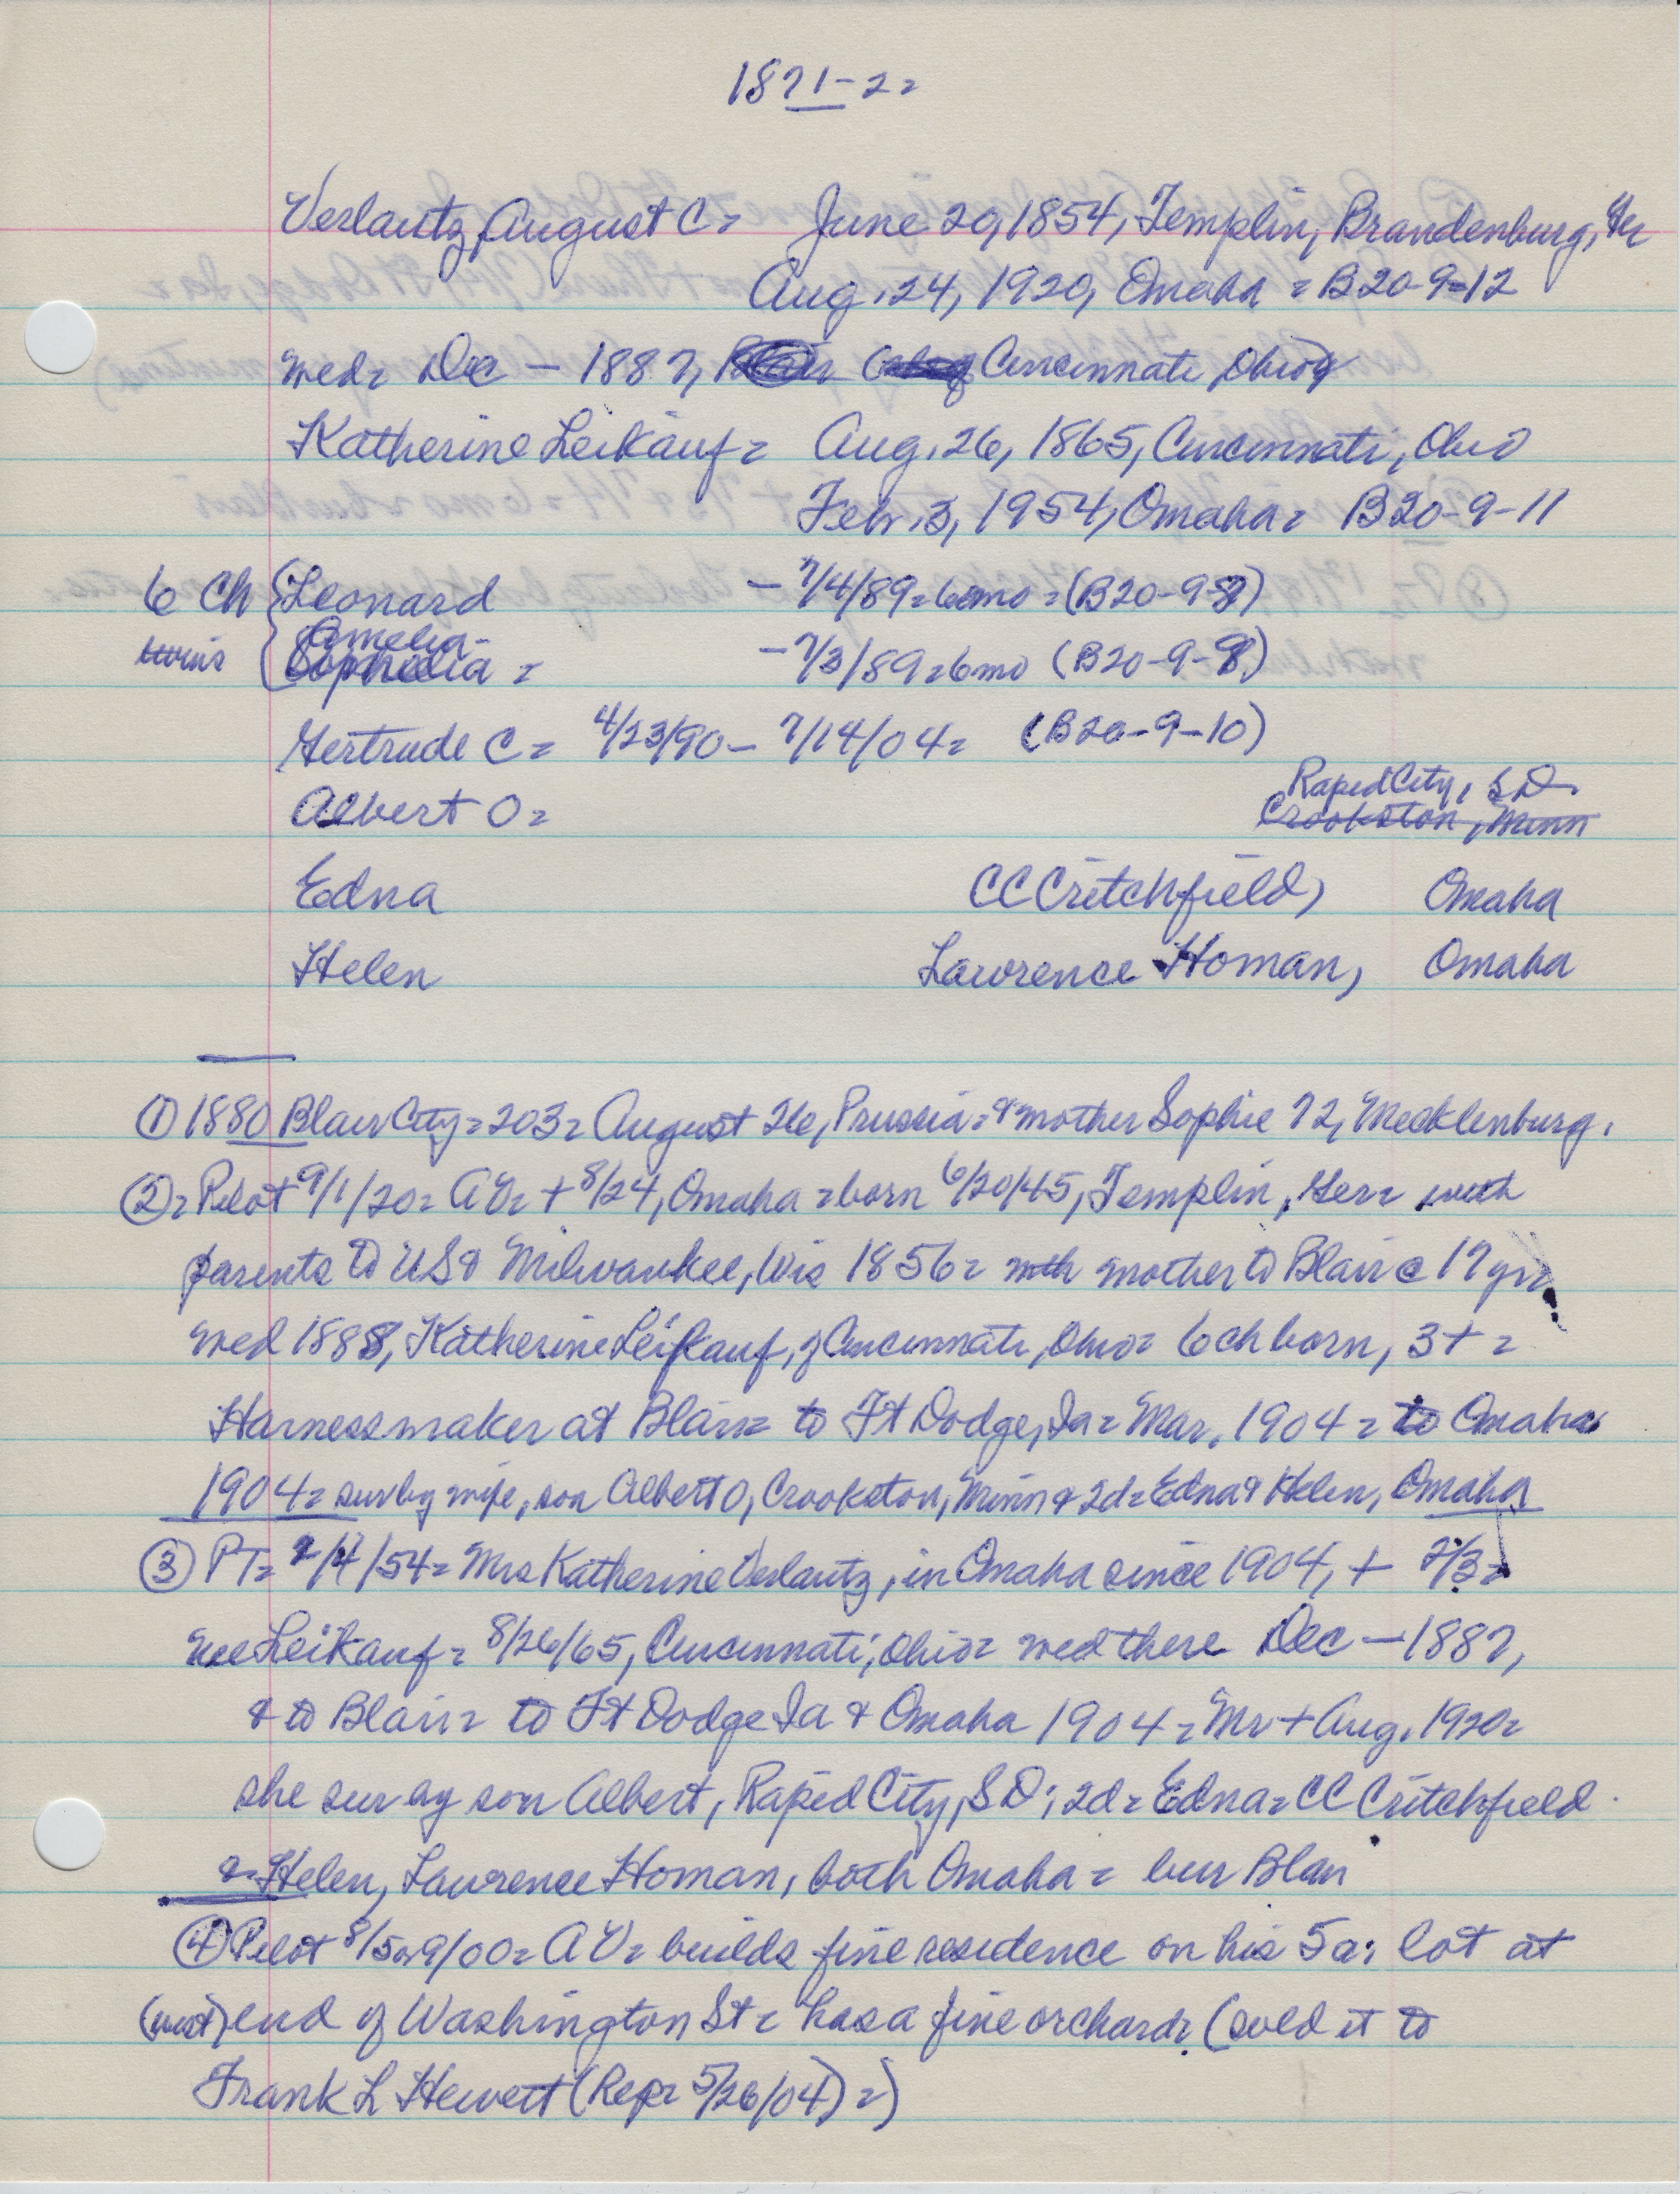 1871-2=
Verlautz, August C= June 20, 1854, Templin, Brandenburg, Ger
Aug. 24, 1920, Omaha = B20-9-12
wed= Dec — 1887, Cincinnati, Ohio
Katherine Leikauf= Aug. 26, 1865, Cincinnati, Ohio
Febr. 3, 1954, Omaha= B20-9-11
6 Ch { Leonard — 7/4/89=6mo=(B20-9-8)
Amelia-
twins { Sophelia = — 7/3/89=6mo (B20-9-9)
Gertrude C= 4/23/90 — 7/14/04= (B20-9-10)
Rapid City, S D.
Albert O= Crookston, Minn
Edna CC Critchfield, Omaha
Helen Lawrence Homan, Omaha
① 1880 Blair City=203= August 26, Prussia=& mother Sophie 72, Mecklenburg.
②= Pilot 9/1/20= AV= + 8/24, Omaha=born 6/20/45, Templin, Ger= with
parents to US& Milwaukee, Wis 1856= mother to Blair @ 17 yr=
wed 1888, Katherine Leikauf, of Cincinnati, Ohio= 6 ch born, 3+ =
Harnessmaker at Blair= to Ft Dodge, Ia= Mar. 1904= to Omaha
1904= sur by wife, son Albert O, Crookston, Minn & 2d= Edna & Helen, Omaha
③ PT= 2/4/54= Mrs Katherine Verlautz, in Omaha since 1904, + 2/3=
nee Leikauf= 8/26/65, Cincinnati, Ohio= wed there Dec — 1887,
& to Blair= to Ft Dodge Ia & Omaha 1904= Mr + Aug. 1920=
she sur by son Albert, Rapid City, S D; 2d= Edna= CC Critchfield.
&= Helen, Lawrence Homan, both Omaha= bur Blair
④ Pilot 8/5 9/00= AV= builds fine residence on his 5a; lot at
(west) end of Washington St= has a fine orchard= (sold it to
Frank L Hewett (Rep= 5/26/04)=)